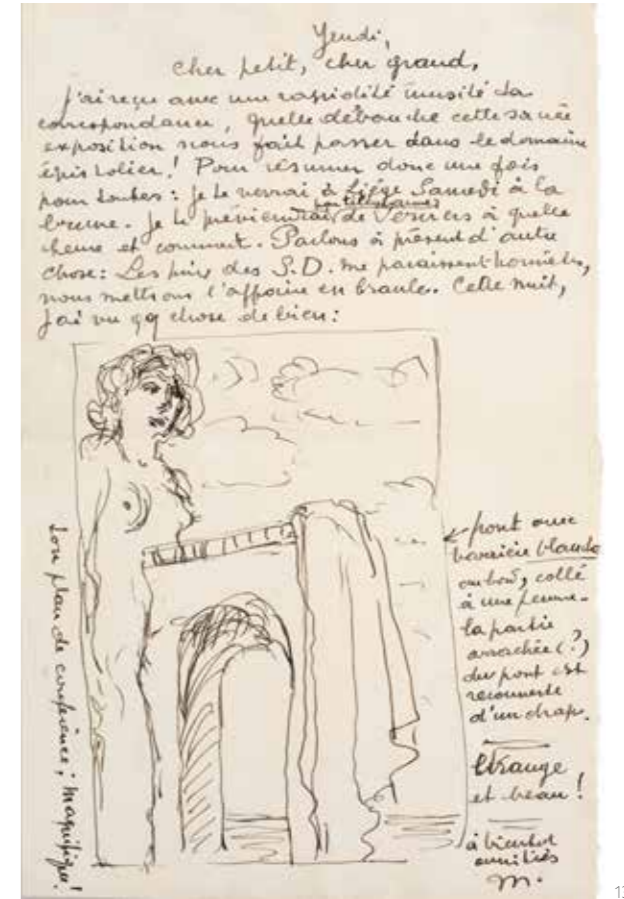 Jeudi,
cher petit, cher grand,
J'ai reçu avec une rapidité inusité ta
correspondance, quelle débauche cette sacrée
exposition nous fait passer dans le domaine
épistolier! Pour résumer donc une fois
pour toutes: je te verrai à Liège Samedi à la
brume. je te préviendrai de Verviers à quelle
heure et comment. Parlons à présent d'autre
chose: Les des S.D. me paraissent
nous mettons l'affaire en branle. Cette nuit,
j'ai vu qq chose de bien:
pont avec
barrière blanche
, collé
à une femme.
la partie
arrachée (?)
du pont est
recouverte
d'un drap.
Etrange
et beau!
à bientôt
amitiés
M.
Ton plan de conférence; magnifique!
13